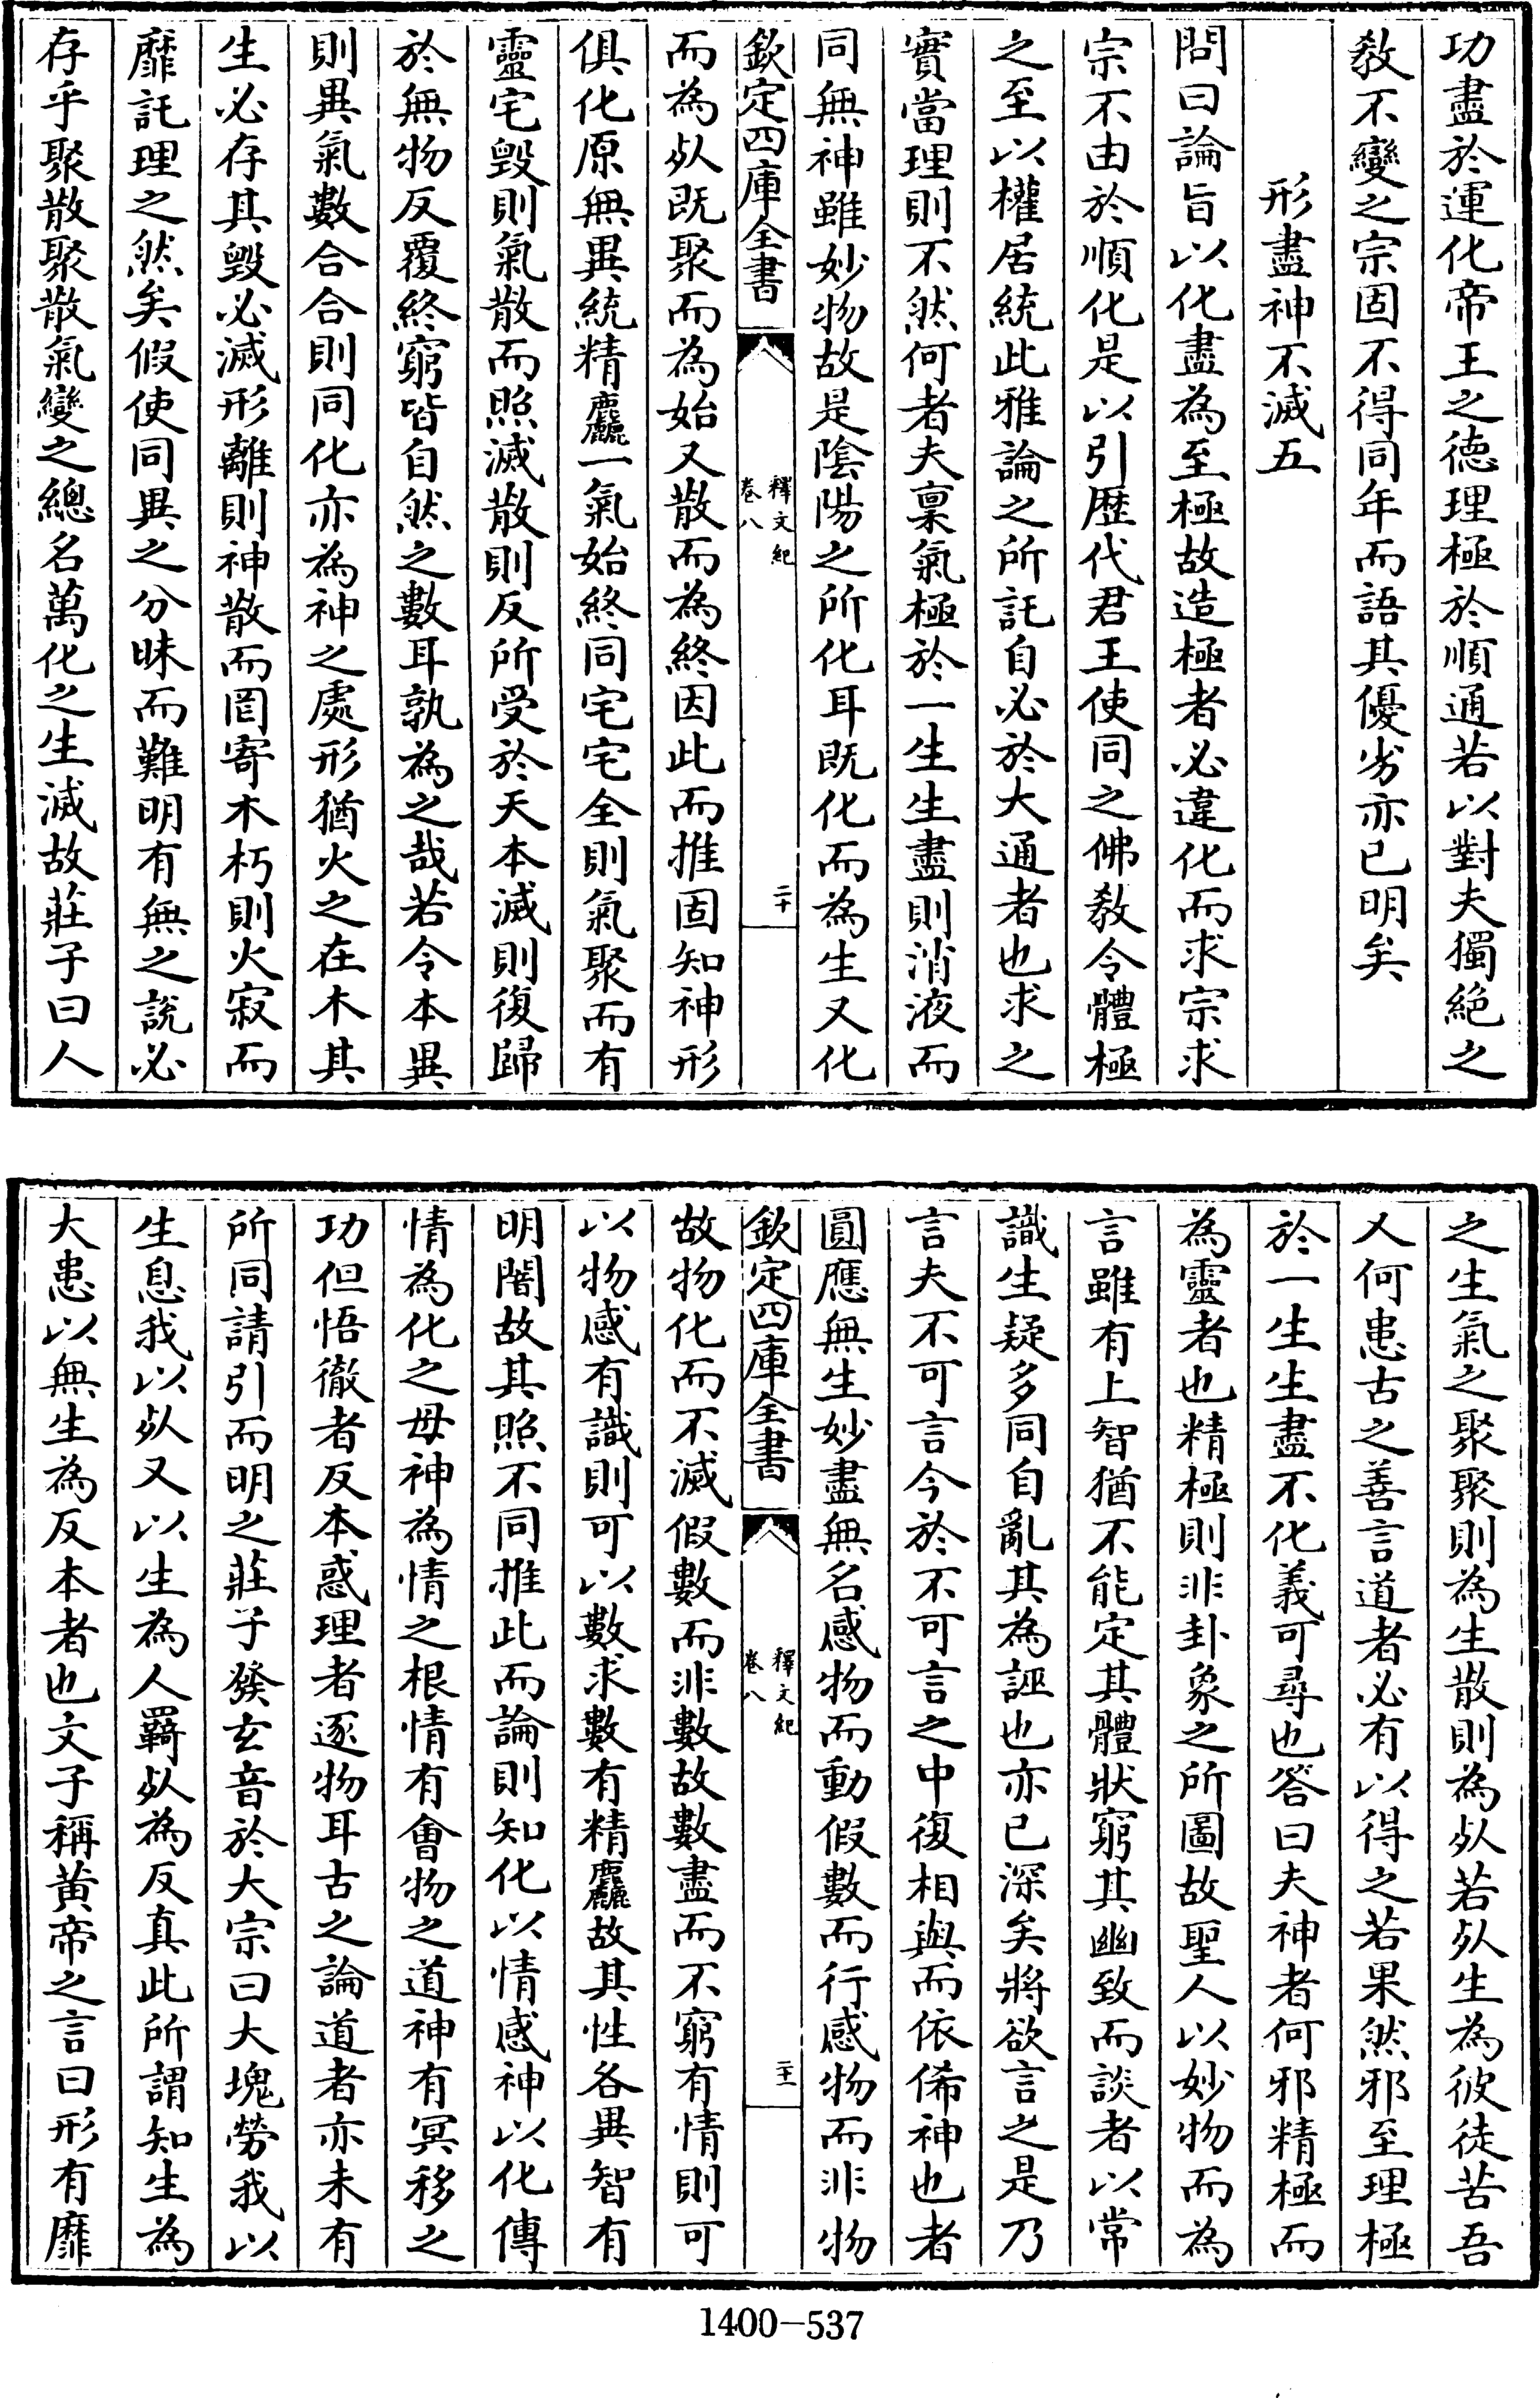 功盡於運化帝王之德理極於順通若以對夫獨絶之
敎不變之宗固不得同年而語其優劣亦已明矣
形盡神不滅五
問曰論旨以化盡為至極故造極者必違化而求宗求
宗不由於順化是以引歴代君王使同之佛敎令體極
之至以權居統此雅論之所託自必於大通者也求之
實當理則不然何者夫禀氣極於一生生盡則消液而
同無神雖妙物故是陰陽之所化耳既化而為生又化
欽定四庫全書
釋文紀
卷八
二十
而為㱕既聚而為始又散而為終因此而推固知神形
俱化原無異統精麤一氣始終同宅宅全則氣聚而有
靈宅毀則氣散而照滅散則反所受於天本滅則復歸
於無物反覆終窮皆自然之數耳孰為之哉若令本異
則異氣數合合則同化亦為神之處形猶火之在木其
生必存其毀必滅形離則神散而罔寄木朽則火寂而
靡託理之然矣假使同異之分昧而難明有無之說必
存乎聚散聚散氣變之總名萬化之生滅故莊子曰人
之生氣之聚聚則為生散則為㱕若㱕生為彼徒苦吾
又何患古之善言道者必有以得之若果然邪至理極
於一生生盡不化義可尋也答曰夫神者何邪精極而
為靈者也精極則非卦象之所圖故聖人以妙物而為
言雖有上智猶不能定其體狀窮其幽致而談者以常
識生疑多同自亂其為誣也亦已深矣將欲言之是乃
言夫不可言今於不可言之中復相與而依俙神也者
圓應無生妙盡無名感物而動假數而行感物而非物
欽定四庫全書
釋文紀
卷八
二十一
故物化而不滅假數而非數故數盡而不窮有情則可
以物感有識則可以數求數有精麤故其性各異智有
明闇故其照不同推此而論則知化以情感神以化傳
情為化之母神為情之根情有會物之道神有冥移之
功但悟徹者反本惑理者逐物耳古之論道者亦未有
所同請引而明之莊子發玄音於大宗曰大塊勞我以
生息我以㱕又以生為人羇㱕為反真此所謂知生為
大患以無生為反本者也文子稱黃帝之言曰形有靡
1400-537